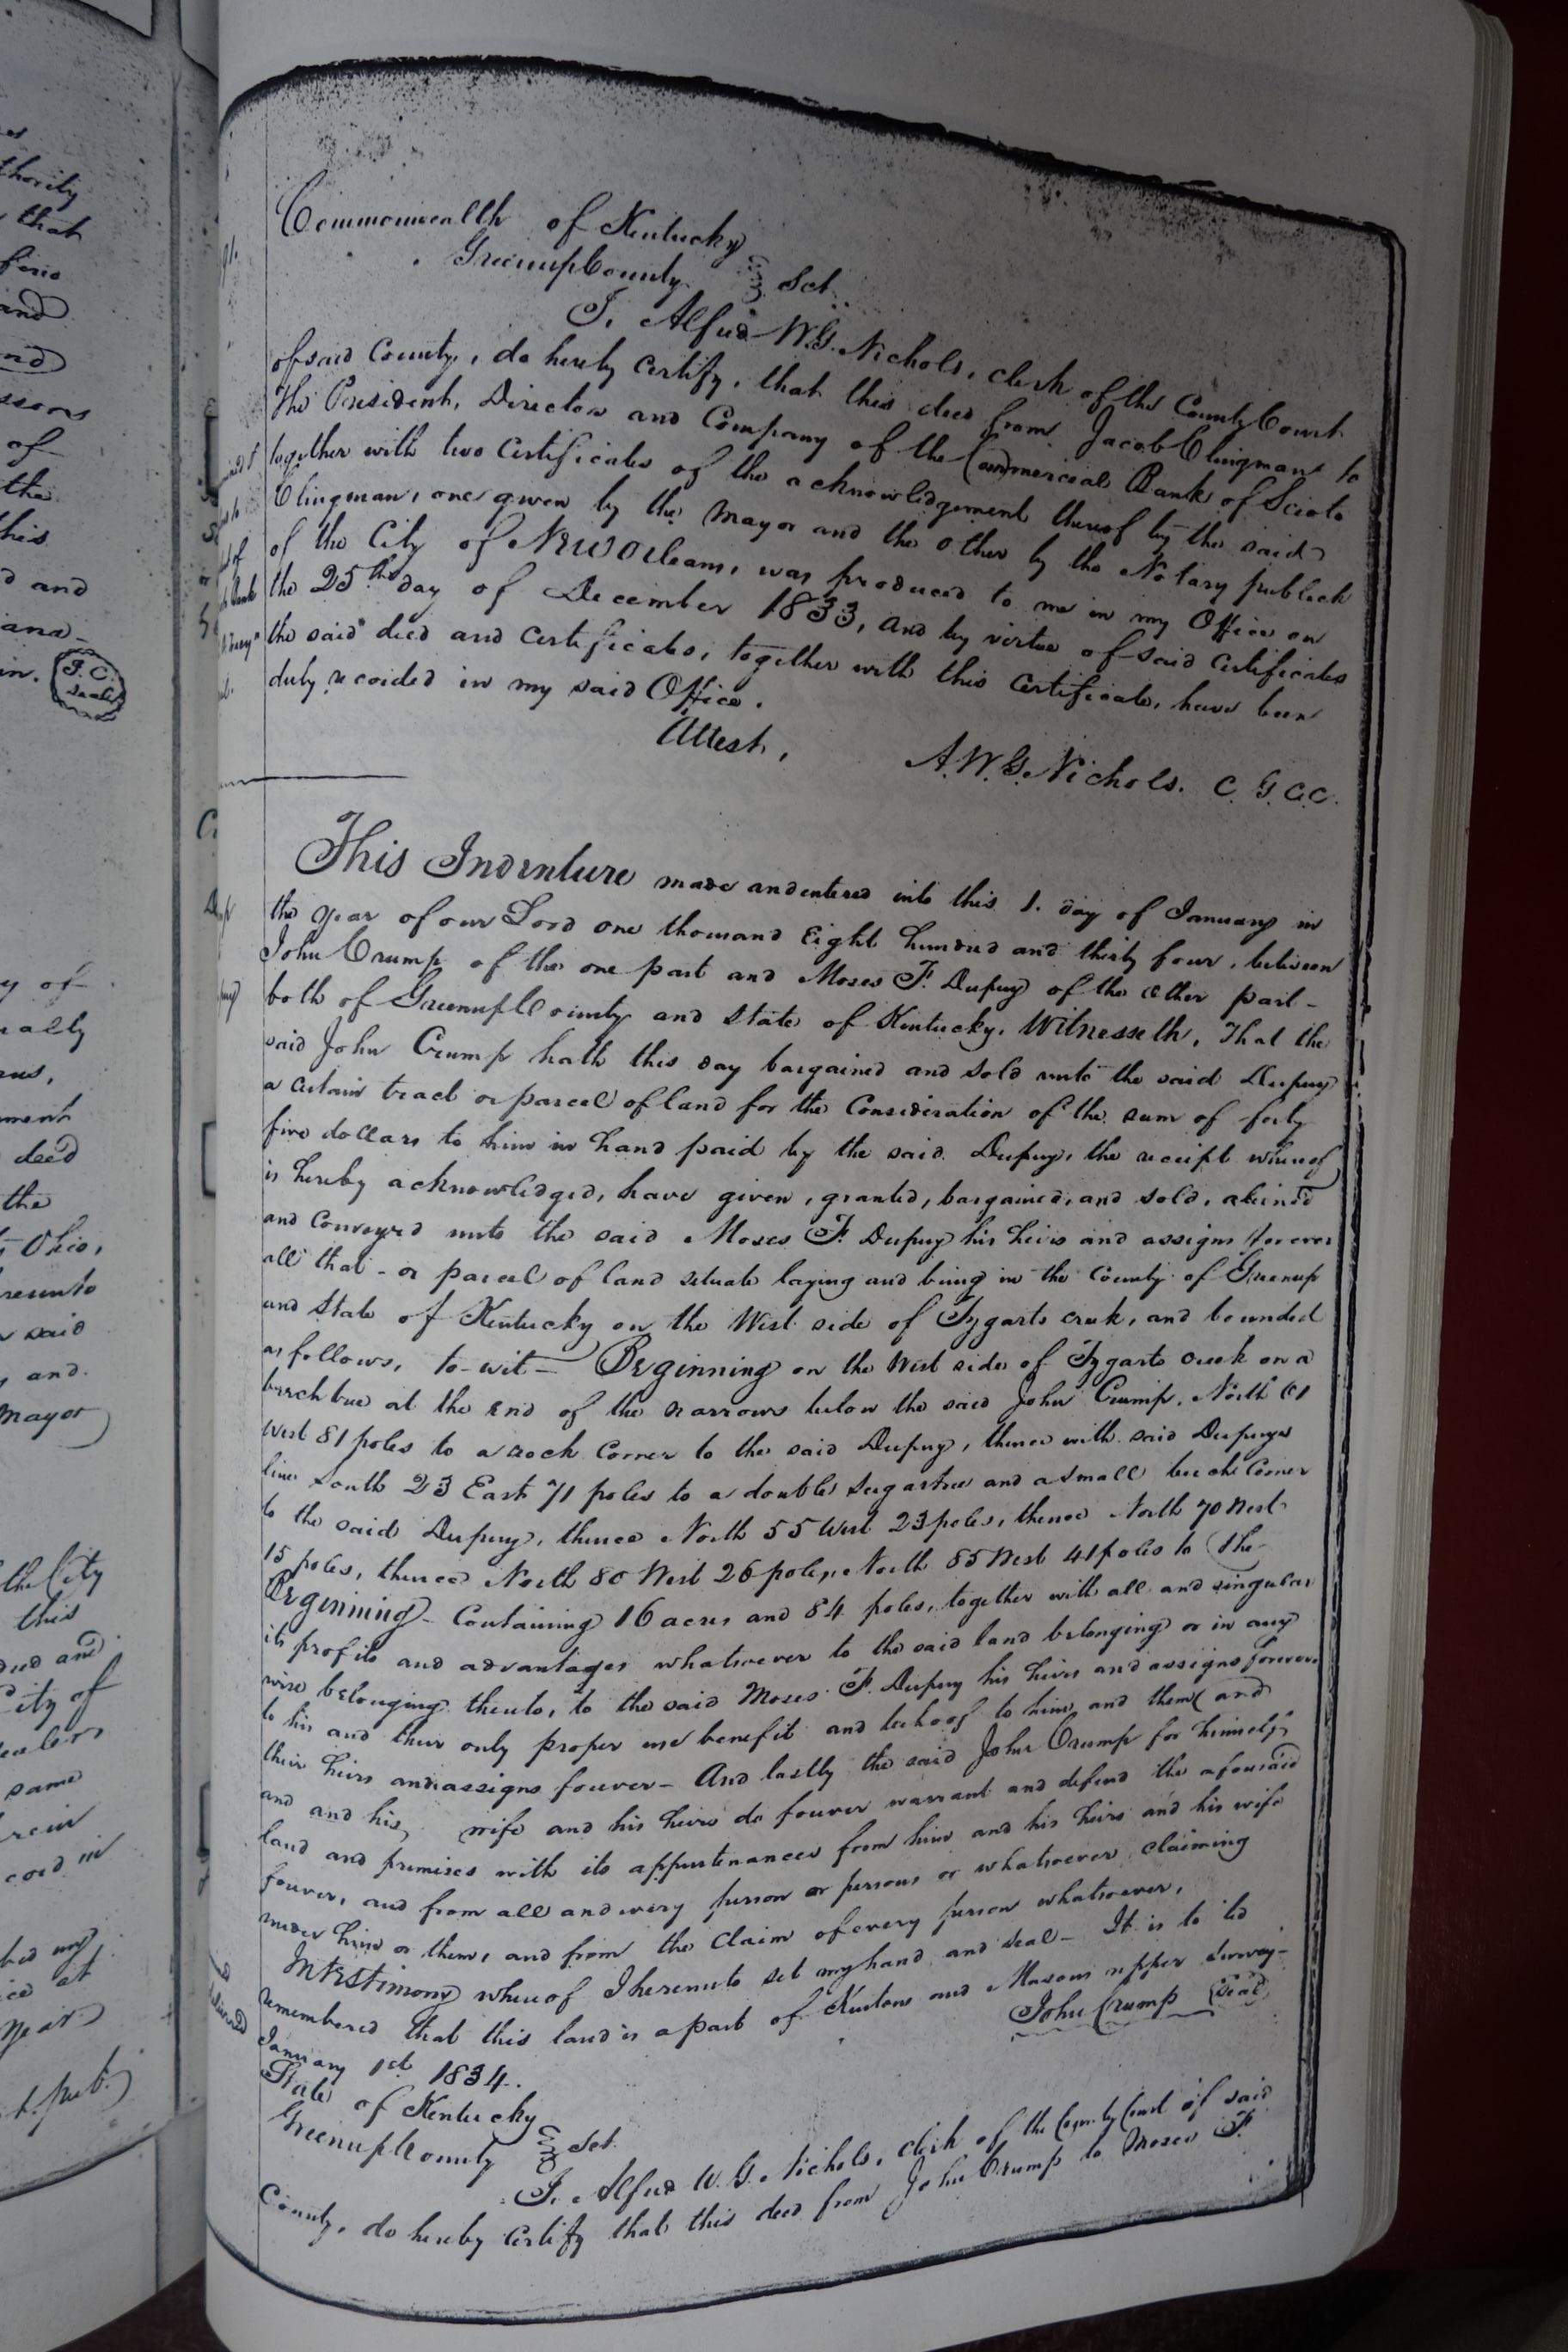 Commonwealth of Kentucky
Greenup County Sct.
I, Alfred W. G. Nichols, clerk of the County Court
of said County, do hereby certify, that this deed from Jacob Clingman to
the President, Director and Company of the Commercial Bank of Scioto
together with two certificates of the acknowledgement thereof by the said
Clingman, one given by the Mayor and the other by the Notary publick
of the City of New Orleans, was produced to me in my Office on
the 25th day of December 1833, and by virtue of said certificates
the said deed and certificates, together with this certificate, have been
duly recorded in my said Office.
Attest, A. W. G. Nichols. C. G. C. C.
This Indenture made and entered into this 1. day of January in
the year of our Lord one thousand Eight hundred and thirty four, between
John Crump of the one part and Moses F. Dupuy of the other part -
both of Greenup County and State of Kentucky. Witnesseth, That the
said John Crump hath this day bargained and sold unto the said Dupuy
a certain tract or parcel of land for the Consideration of the sum of forty
five dollars to him in hand paid by the said Dupuy, the receipt whereof
is hereby acknowledged, have given, granted, bargained, and sold, aliened
and conveyed unto the said Moses F. Dupuy his heirs and assigns forever
all that - or parcel of land situate laying and being in the County of Greenup
and State of Kentucky on the West side of Tygarts creek, and bounded
as follows, to-wit - Beginning on the West side of Tygarts creek on a
beech tree at the end of the narrows below the said John Crump, North 61
West 81 poles to a rock corner to the said Dupuy, thence with said Dupuys
line South 23 East 71 poles to a double sugartree and a small beech corner
to the said Dupuy, thence North 55 West 23 poles, thence North 70 West
15 poles, thence North 80 West 26 poles, North 85 West 41 poles to the
Beginning - Containing 16 acres and 84 poles, together with all and singular
its profits and advantages whatsoever to the said land belonging or in any
wise belonging thereto, to the said Moses F. Dupuy his heirs and assigns forever
to his and their only proper use benefit and behoof to him, and them (and
their heirs and assigns forever - And lastly the said John Crump for himself
and and his, wife and his heirs do forever warrant and defend the aforesaid
land and premises with its appurtenances from him and his heirs and his wife
forever, and from all and every person or persons or whatsoever claiming
under him or them, and from the claim of every person whatsoever.
In testimony whereof I hereunto set my hand and seal - It is to be
remembered that this land is a part of and Masons upper survey -
January 1st 1834. John Crump Seal
State of Kentucky
Greenup County Sct.
I, Alfred W. G. Nichols, clerk of the County Court of said
County, do hereby certify that this deed from John Crump to Moses F.